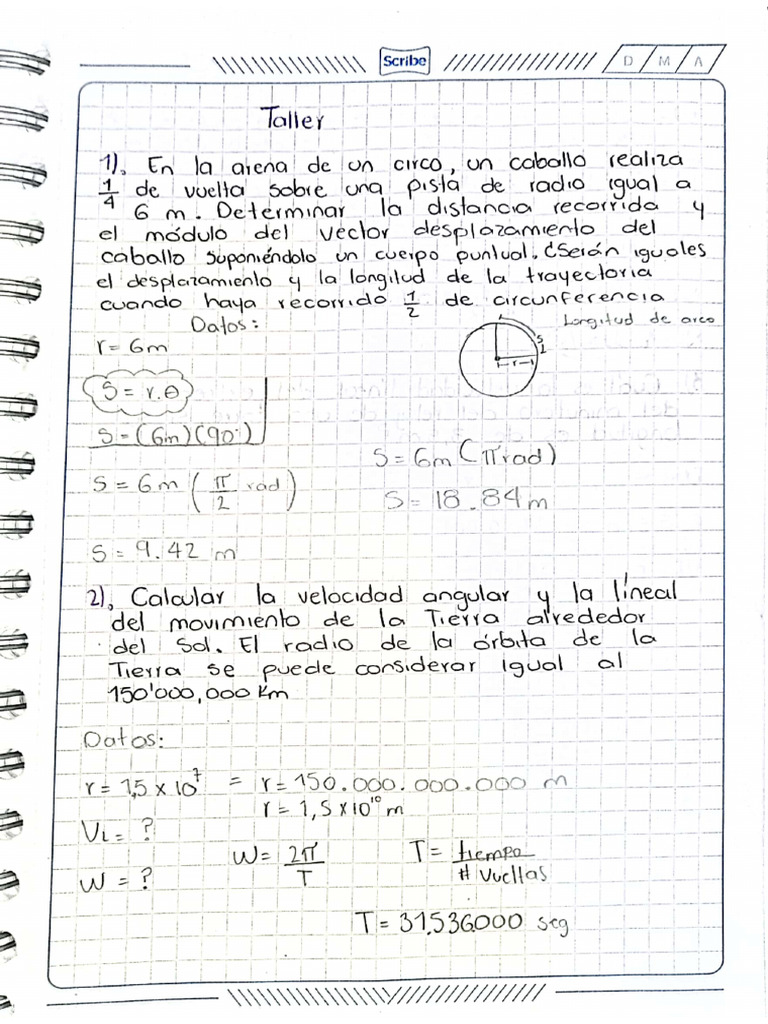 Scribe
D M A
Taller
1). En la arena de un circo, un caballo realiza
1/4 de vuelta sobre una pista de radio igual a
6 m. Determinar la distancia recorrida y
el módulo del vector desplazamiento del
caballo suponiéndolo un cuerpo puntual. ¿Serán iguales
el desplazamiento y la longitud de la trayectoria
cuando haya recorrido 1/2 de circunferencia
Datos:
Longitud de arco
r = 6m
S = r.θ
S = (6m)(90°)
S = 6m (π/2 rad)
S = 6m (π rad)
S = 18.84 m
S = 9.42 m
2). Calcular la velocidad angular y la líneal
del movimiento de la Tierra alrededor
del Sol. El radio de la órbita de la
Tierra se puede considerar igual al
150'000,000 Km
Datos:
r = 1,5 x 10⁷ = r = 150.000.000.000 m
r = 1,5 x 10¹⁰ m
VL = ?
W = 2π/T
T = tiempo / # Vueltas
W = ?
T = 31.536.000 seg